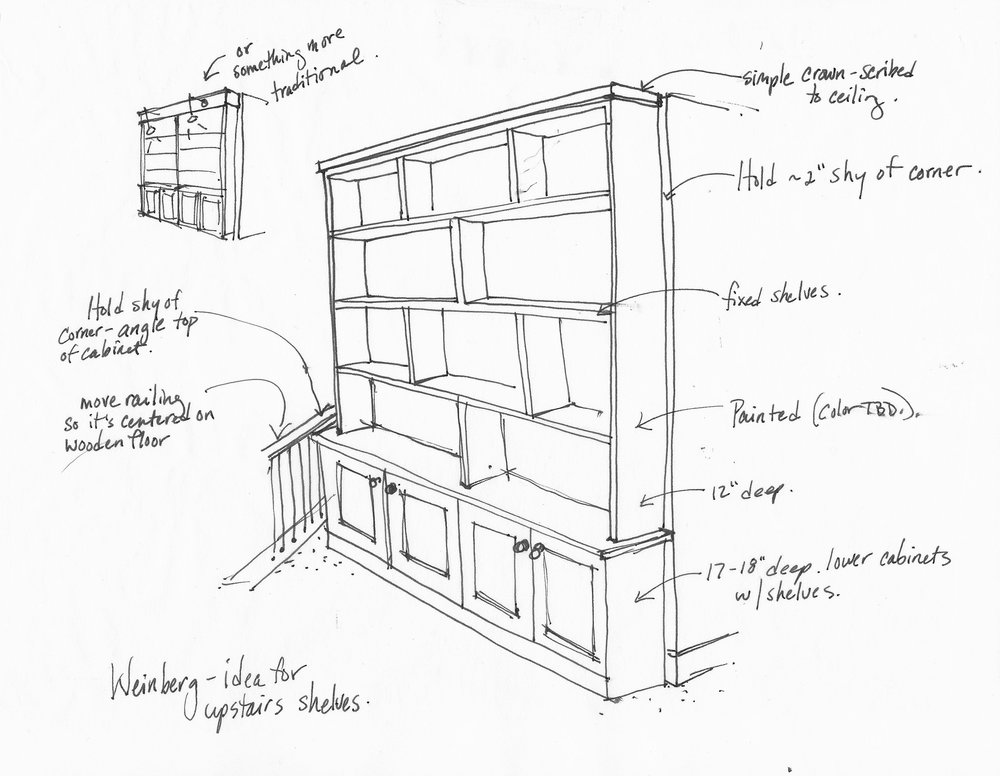 or
something more
traditional.
simple crown-scribed
to ceiling.
Hold ~2" shy of corner.
Hold shy of
corner-angle top
of cabinet.
fixed shelves.
move railing
so it's centered on
wooden floor
Painted (color TBD.).
12" deep.
17-18" deep. lower cabinets
w/shelves.
Weinberg - idea for
upstairs shelves.